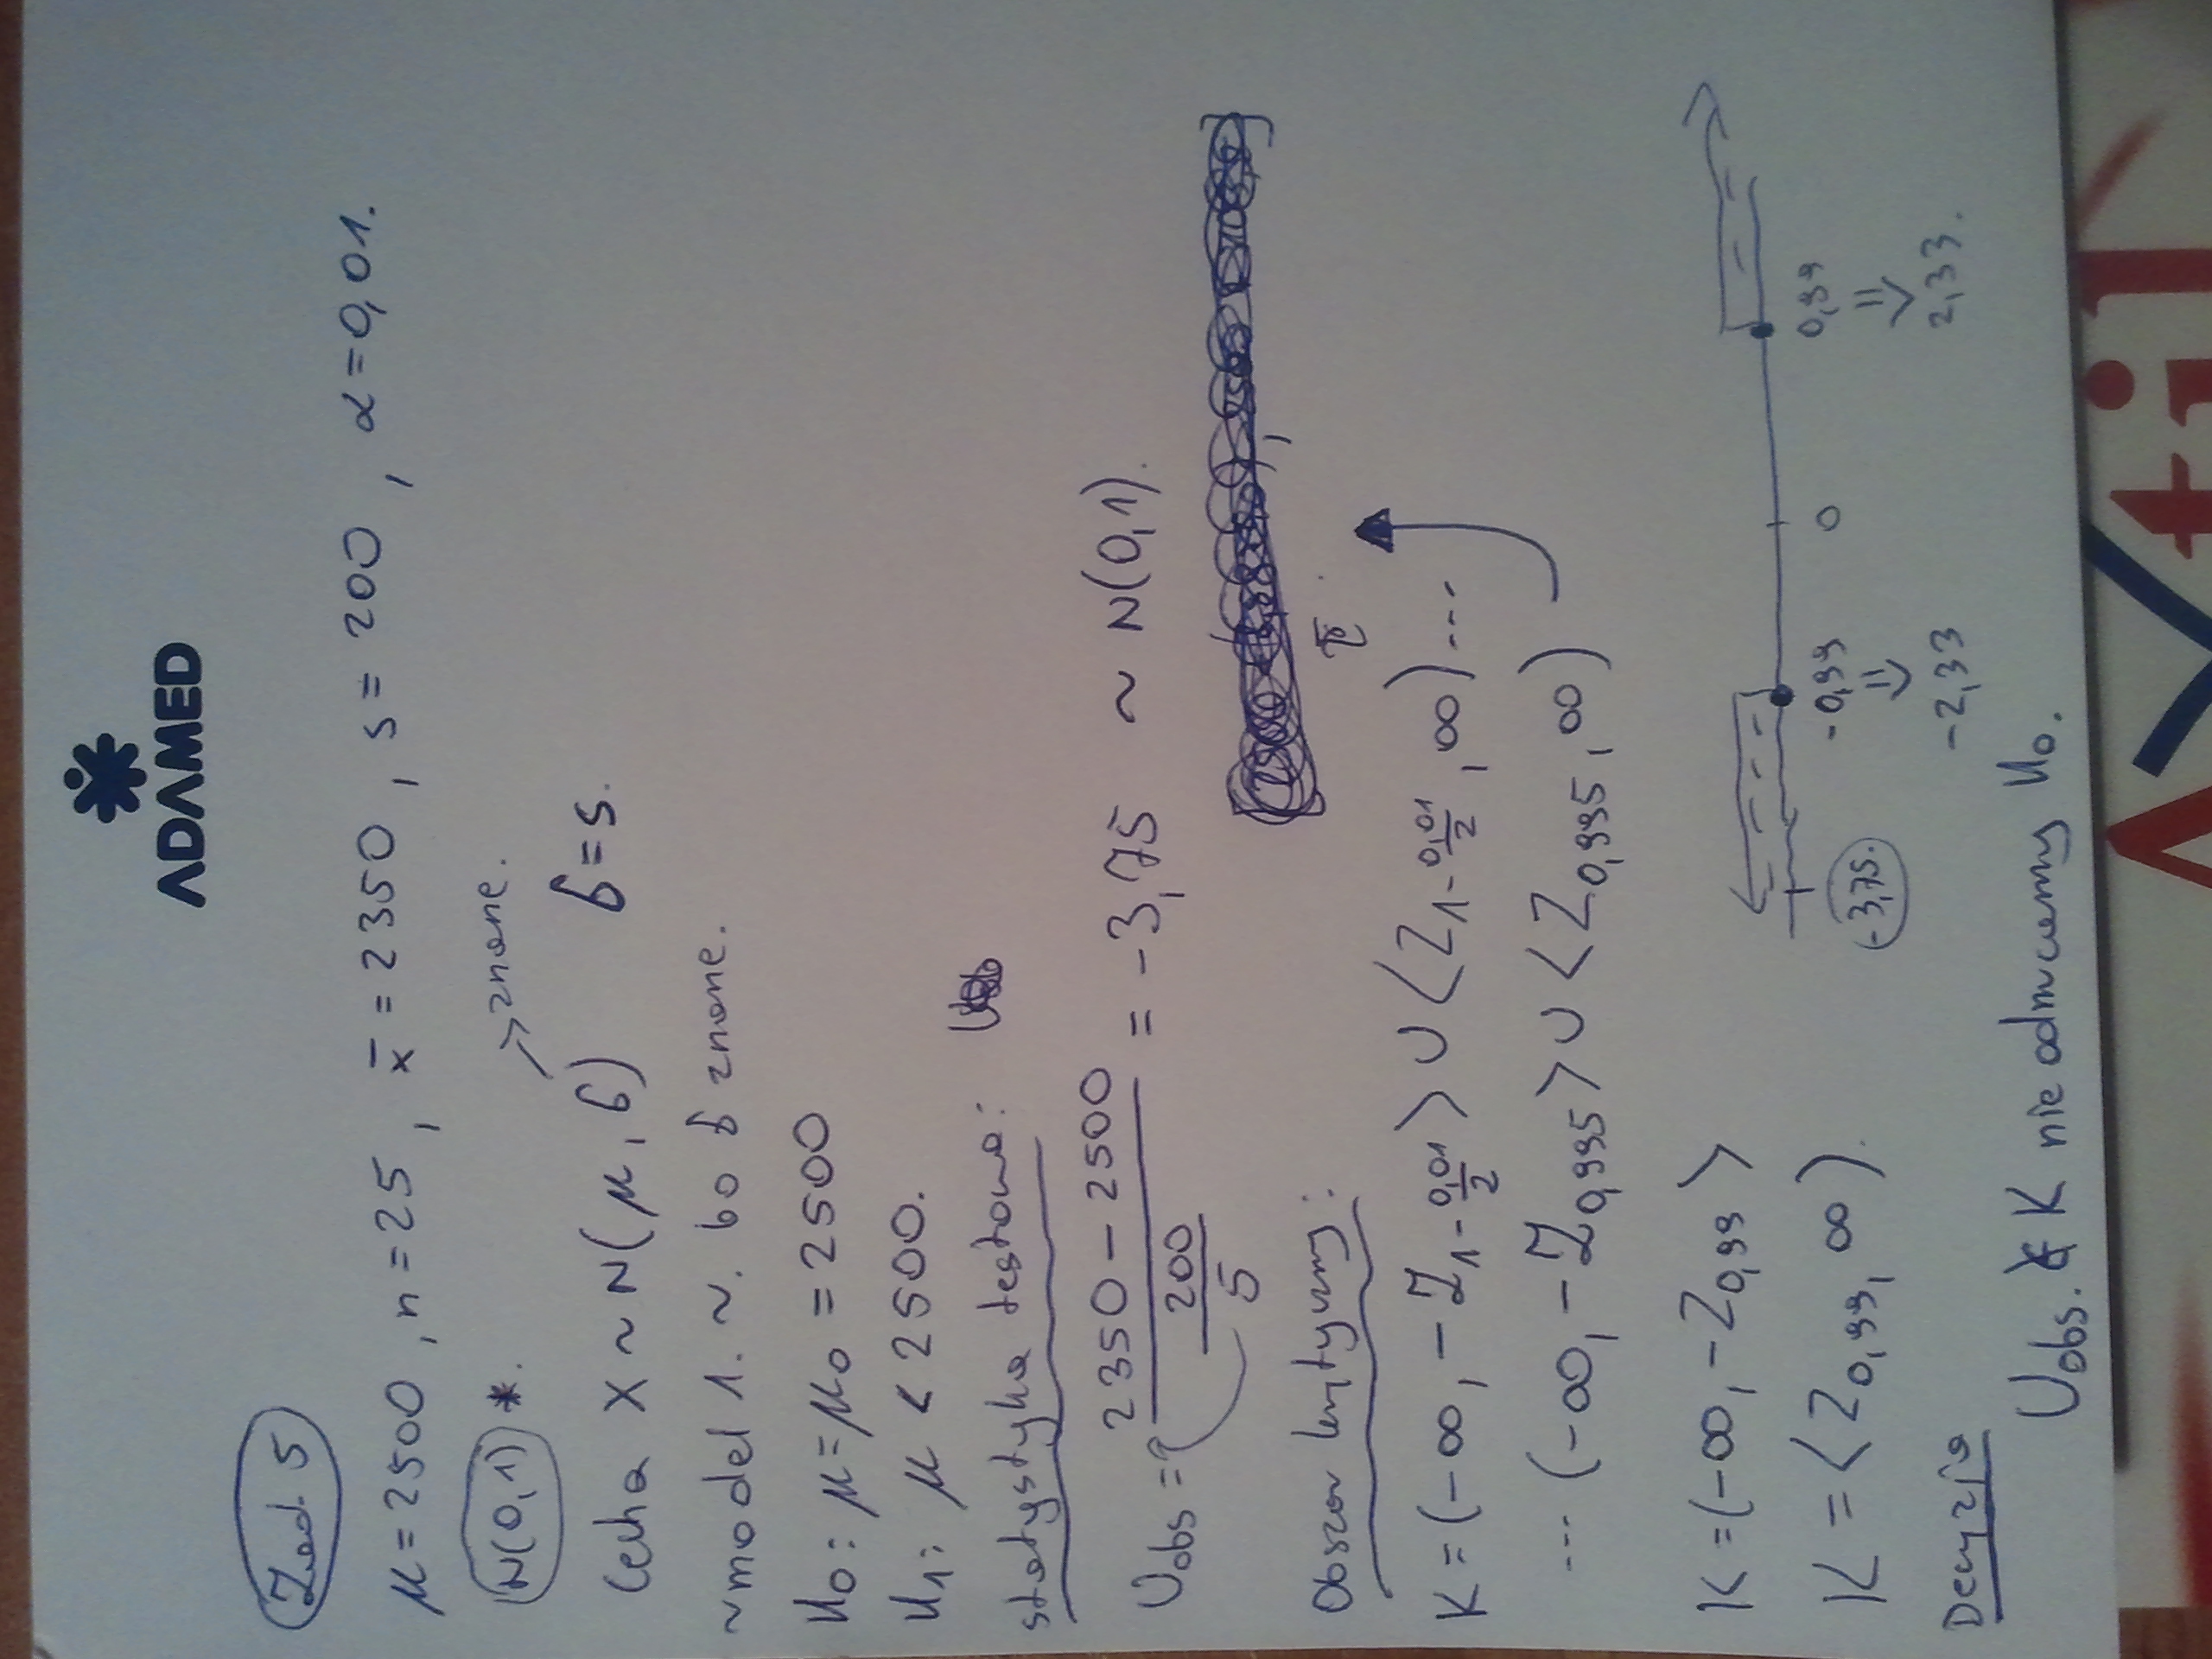 ADAMED
Zad. 5
μ = 2500, n = 25, x̄ = 2350, s = 200, α = 0,01.
N(0,1) *.
znane.
Cecha X ~ N(μ, б) б = s.
~ model 1. ~. bo б znane.
H₀: μ = μ₀ = 2500
H₁: μ < 2500.
statystyka testowa:
Uobs = (2350 - 2500) / (200 / 5) = -3,75 ~ N(0,1).
Obszar krytyczny:
K = (-∞, -Z1-0,01/2> ∪ <Z1-0,01/2, ∞) ...
... (-∞, -Z0,995> ∪ <Z0,995, ∞)
K = (-∞, -Z0,99>
K = <Z0,99, ∞).
-3,75. -0,99 0 0,99
⇓ ⇓
-2,33 2,33.
Decyzja
Uobs. ∉ K nie odrzucamy H₀.
til